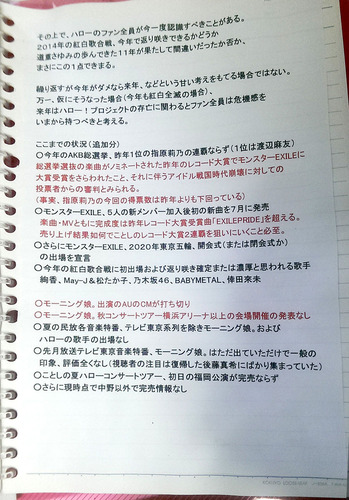 その上で、ハローのファン全員が今一度認識すべきことがある。
2014年の紅白歌合戦、今年で返り咲きできるかどうか
道重さゆみの歩んできた11年が果たして間違いだったか否か、
まさにこの1点できまる。
繰り返すが今年がダメなら来年、などという甘い考えをもてる場合ではない。
万一、仮にそうなった場合(今年も紅白全滅の場合)、
来年はハロー!プロジェクトの存亡に関わるとファン全員は危機感を
いまから持つべきと考える。
ここまでの状況(追加分)
○今年のAKB総選挙、昨年1位の指原莉乃の連覇ならず(1位は渡辺麻友)
総選挙選抜の楽曲がノミネートされた昨年のレコード大賞でモンスターEXILEに
大賞受賞をさらわれたこと、それに伴うアイドル戦国時代崩壊に対しての
投票者からの審判とみられる。
(事実、指原莉乃の今回の得票数は昨年よりも下回っている)
○モンスターEXILE、5人の新メンバー加入後初の新曲を7月に発売
楽曲・MVともに完成度は昨年レコード大賞受賞曲「EXILEPRIDE」を超える。
売り上げ結果如何でことしのレコード大賞2連覇を狙いにいくこと必至。
○さらにモンスターEXILE、2020年東京五輪、開会式(または閉会式か)
の出場を宣言
○今年の紅白歌合戦に初出場および返り咲き確定または濃厚と思われる歌手
絢香、May-J&松たか子、乃木坂46、BABYMETAL、倖田來未
○モーニング娘。出演のAUのCMが打ち切り
○モーニング娘。秋コンサートツアー横浜アリーナ以上の会場開催の発表なし
○夏の民放各音楽特番、テレビ東京系列を除きモーニング娘。および
ハローの歌手の出場なし
○先月放送テレビ東京音楽特番、モーニング娘。はただ出ていただけで一般の
印象、評価全くなし(視聴者の注目は復帰した後藤真希にばかり集まっていた)
○ことしの夏ハローコンサートツアー、初日の福岡公演が完売ならず
○さらに現時点で中野以外で完売情報なし